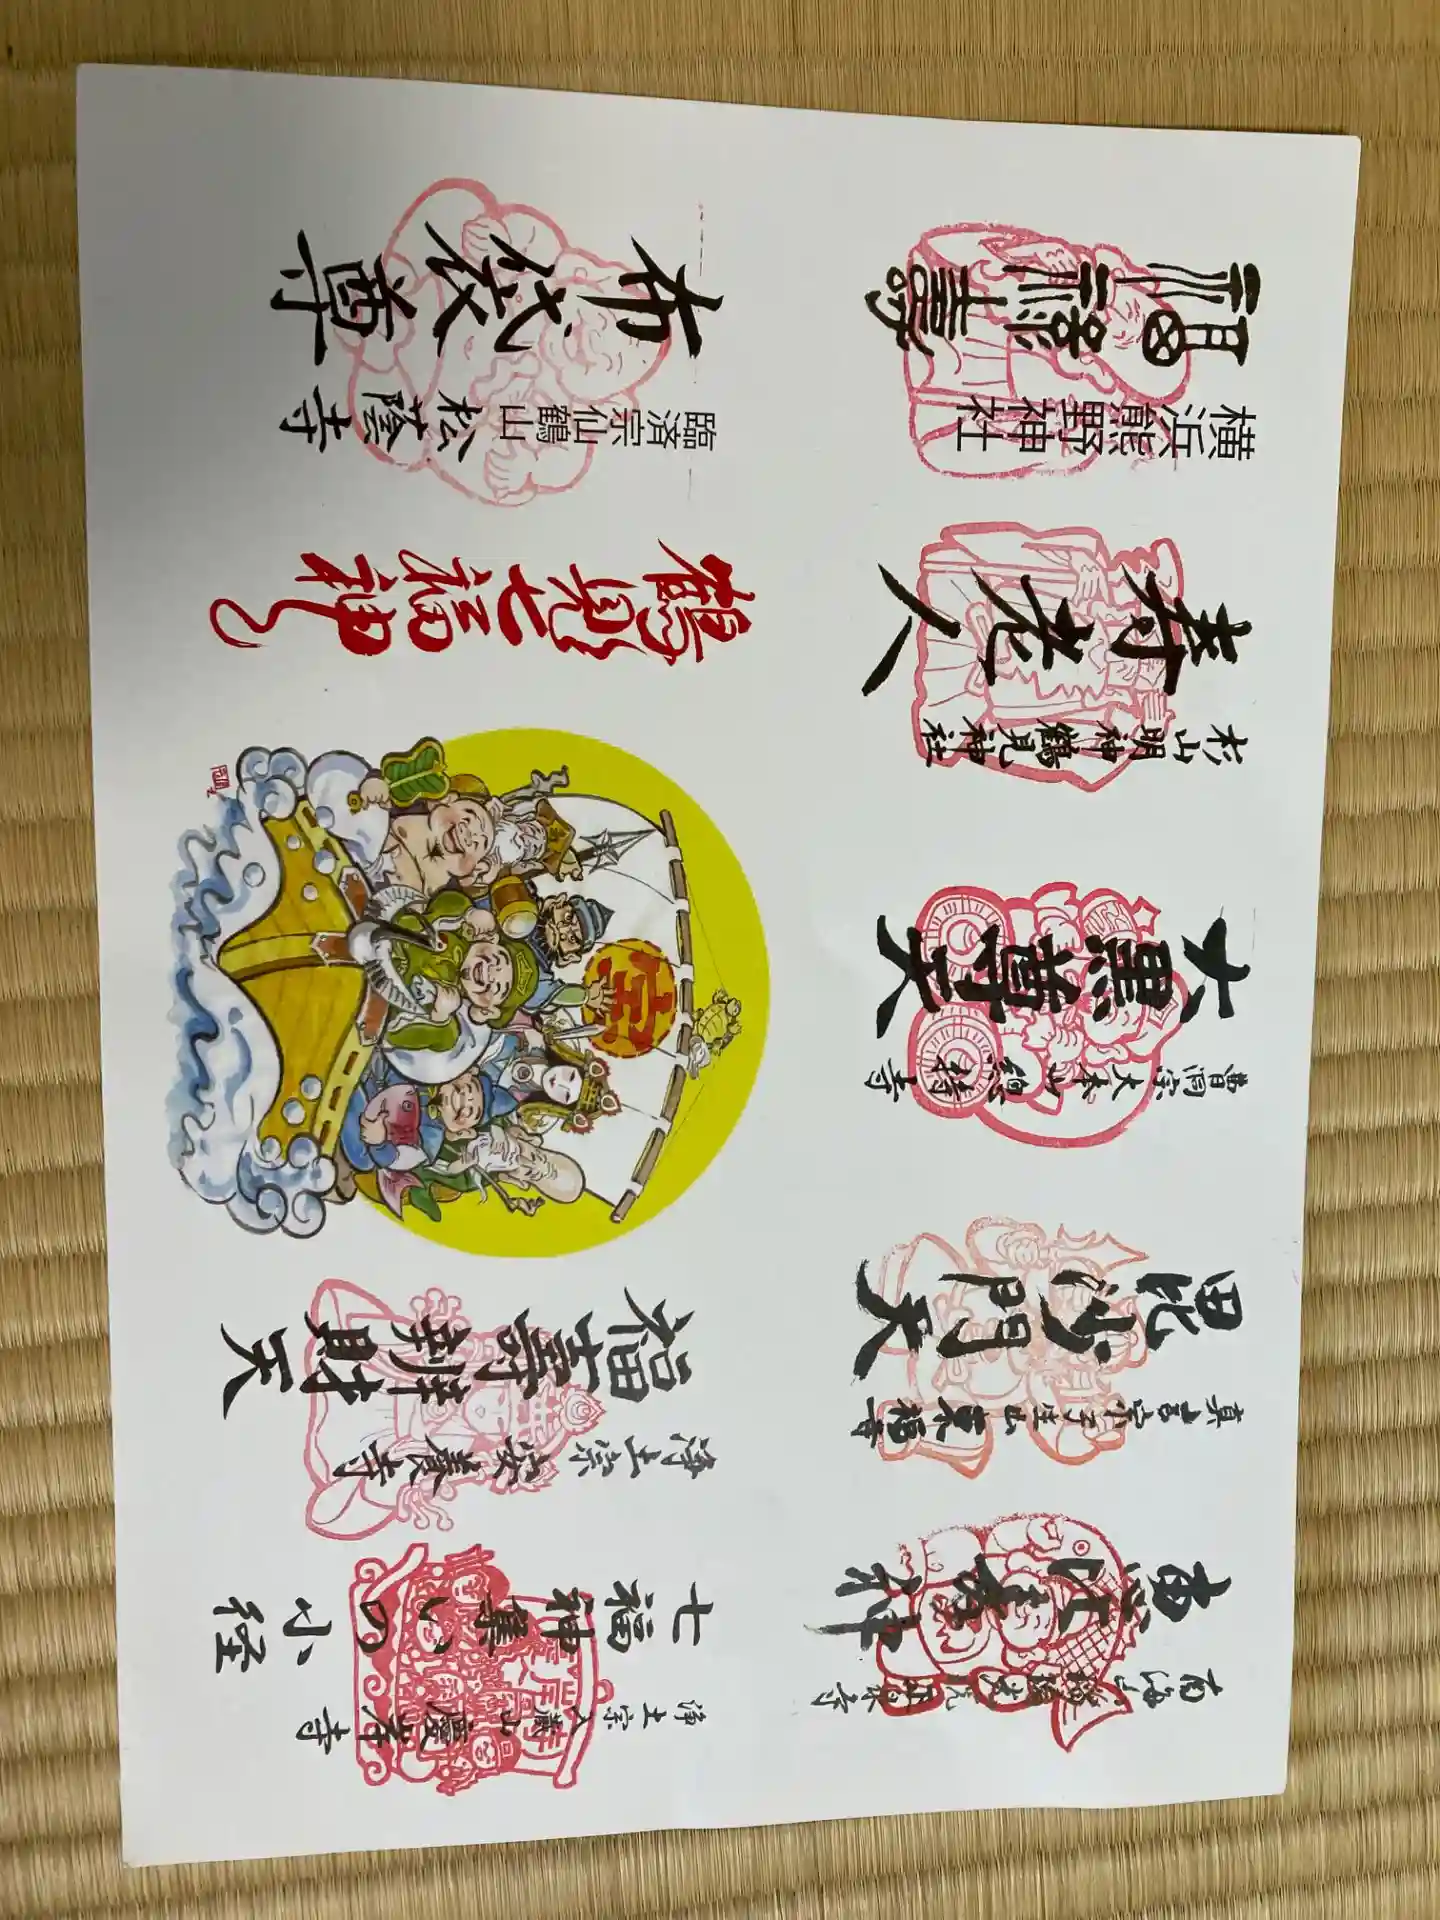 正泉寺
恵比寿神
真言宗子生山東福寺
毘沙門天
曹洞宗大本山總持寺
大黒尊天
杉山明神鶴見神社
寿老人
横浜熊野神社
福禄寿
浄土宗入蔵山慶岸寺
七福神集いの小径
浄土宗安養寺
福寿辨財天
宝
鶴見七福神
臨済宗仙鶴山松蔭寺
布袋尊